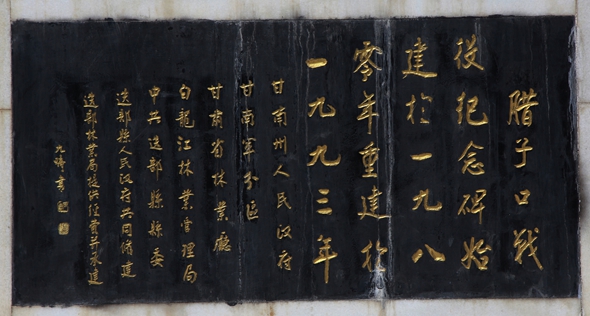 腊子口战
役纪念碑始
建於一九八
零年重建於
一九九三年
甘南州人民政府
甘南军分区
甘肃省林業廳
白龍江林業管理局
中共迭部縣縣委
迭部縣人民政府共同修建
迭部林業局提供经費并承建